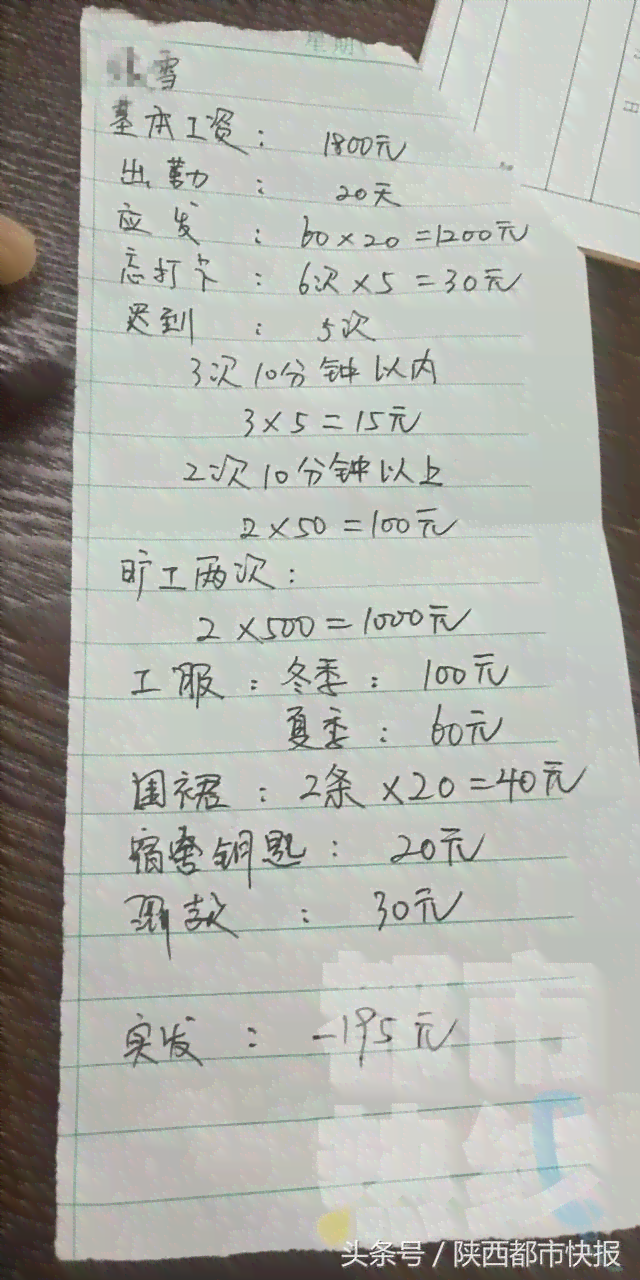 星期
雪
基本工资： 1800元
出勤： 20天
应发： 60×20=1200元
忘打卡： 6次×5=30元
迟到： 5次
3次10分钟以内
3×5=15元
2次10分钟以上
2×50=100元
旷工两次：
2×500=1000元
工服：冬季：100元
夏季：60元
围裙：2条×20=40元
宿舍钥匙：20元
罚款：30元
实发：-195元
都市
热线
头条号/陕西都市快报